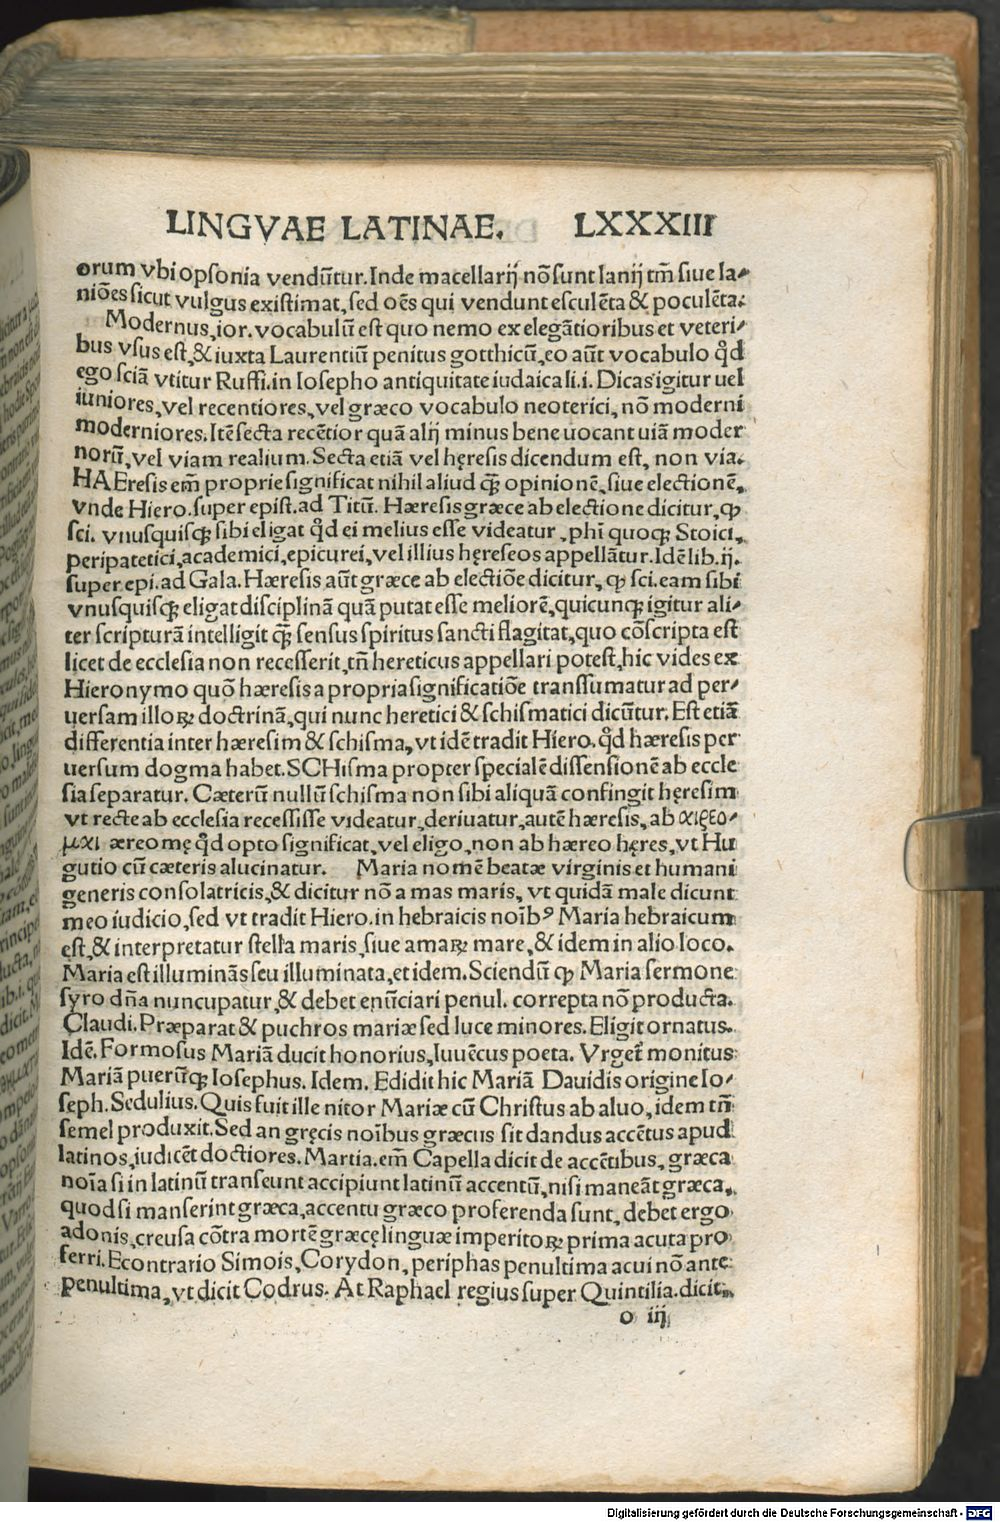 LINGVAE LATINAE. LXXXIII
orum vbi opsonia vendūtur. Inde macellarij nō sunt lanij tm̄ siue la⸗
niōes sicut vulgus existimat, sed oēs qui vendunt esculēta & poculēta.
Modernus, ior. vocabulū est quo nemo ex elegātioribus et veteri⸗
bus vsus est, & iuxta Laurentiū penitus gotthicū, eo aūt vocabulo qd̄
ego sciā vtitur Ruffi. in Iosepho antiquitate iudaica li. i. Dicas igitur uel
iuniores, vel recentiores, vel græco vocabulo neoterici, nō moderni
moderniores. Itē secta recētior quā alij minus bene uocant uiā moder
norū, vel viam realium. Secta etiā vel hęresis dicendum est, non via.
HAEresis em̄ proprie significat nihil aliud qꝫ̄ opinionē, siue electionē,
vnde Hiero. super epist. ad Titū. Hæresis græce ab electione dicitur, ꝙ
sci. vnusquisqꝫ sibi eligat qd̄ ei melius esse videatur, phi̅ quoqꝫ Stoici,
peripatetici, academici, epicurei, vel illius hęreseos appellātur. Idē lib. ij.
super epi. ad Gala. Hæresis aūt græce ab electiōe dicitur, ꝙ sci. eam sibi
vnusquisqꝫ eligat disciplinā quā putat esse meliorē, quicunqꝫ igitur ali⸗
ter scripturā intelligit qꝫ̄ sensus spiritus sancti flagitat, quo cōscripta est
licet de ecclesia non recesserit, tn̄ hereticus appellari potest, hic vides ex
Hieronymo quō hæresis a propria significatiōe transsumatur ad per⸗
uersam illoꝝ doctrinā, qui nunc heretici & schismatici dicūtur. Est etiā
differentia inter hæresim & schisma, vt idē tradit Hiero. qd̄ hæresis per
uersum dogma habet. SCHisma propter specialē dissensionē ab eccle
sia separatur. Cæterū nullū schisma non sibi aliquā confingit hęresim
vt recte ab ecclesia recessisse videatur, deriuatur, autē hæresis, ab αιρεο⸗
μαι æreomę qd̄ opto significat, vel eligo, non ab hæreo hęres, vt Hu
gutio cū cæteris alucinatur. Maria nomē beatæ virginis et humani
generis consolatricis, & dicitur nō a mas maris, vt quidā male dicunt
meo iudicio, sed vt tradit Hiero. in hebraicis noībꝰ Maria hebraicum
est, & interpretatur stella maris, siue amaꝝ mare, & idem in alio loco.
Maria est illuminās seu illuminata, et idem. Sciendū ꝙ Maria sermone
syro dn̄a nuncupatur, & debet enūciari penul. correpta nō producta.
Claudi. Præparat & puchros mariæ sed luce minores. Eligit ornatus.
Idē. Formosus Mariā ducit honorius, Iuuēcus poeta. Vrget̄ monitus
Mariā puerūqꝫ Iosephus. Idem. Edidit hic Mariā Dauidis origine Io⸗
seph. Sedulius. Quis fuit ille nitor Mariæ cū Christus ab aluo, idem tn̄
semel produxit. Sed an gręcis noībus græcus sit dandus accētus apud
latinos, iudicēt doctiores. Martia. em̄ Capella dicit de accētibus, græca
noīa si in latinū transeunt accipiunt latinū accentū, nisi maneāt græca,
quod si manserint græca, accentu græco proferenda sunt, debet ergo
adonis, creusa cōtra mortē græcę linguæ imperitoꝝ prima acuta pro
ferri. Econtrario Simois, Corydon, periphas penultima acui nō ante
penultima, vt dicit Codrus. At Raphael regius super Quintilia. dicit,
o iij
Digitalisierung gefördert durch die Deutsche Forschungsgemeinschaft - DFG